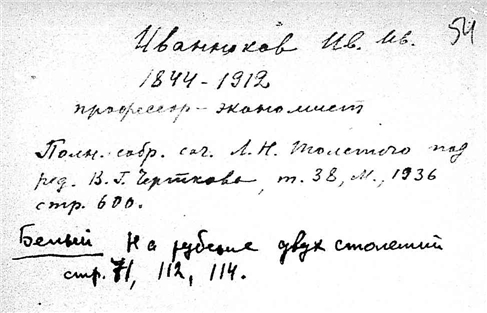 54
Иванюков Ив. Ив.
1844-1912
профессор-экономист
Полн. собр. соч. Л. Н. Толстого под
ред. В. Г. Черткова, т. 38, М., 1936
стр. 600.
Белый На рубеже двух столетий
стр. 71, 112, 114.